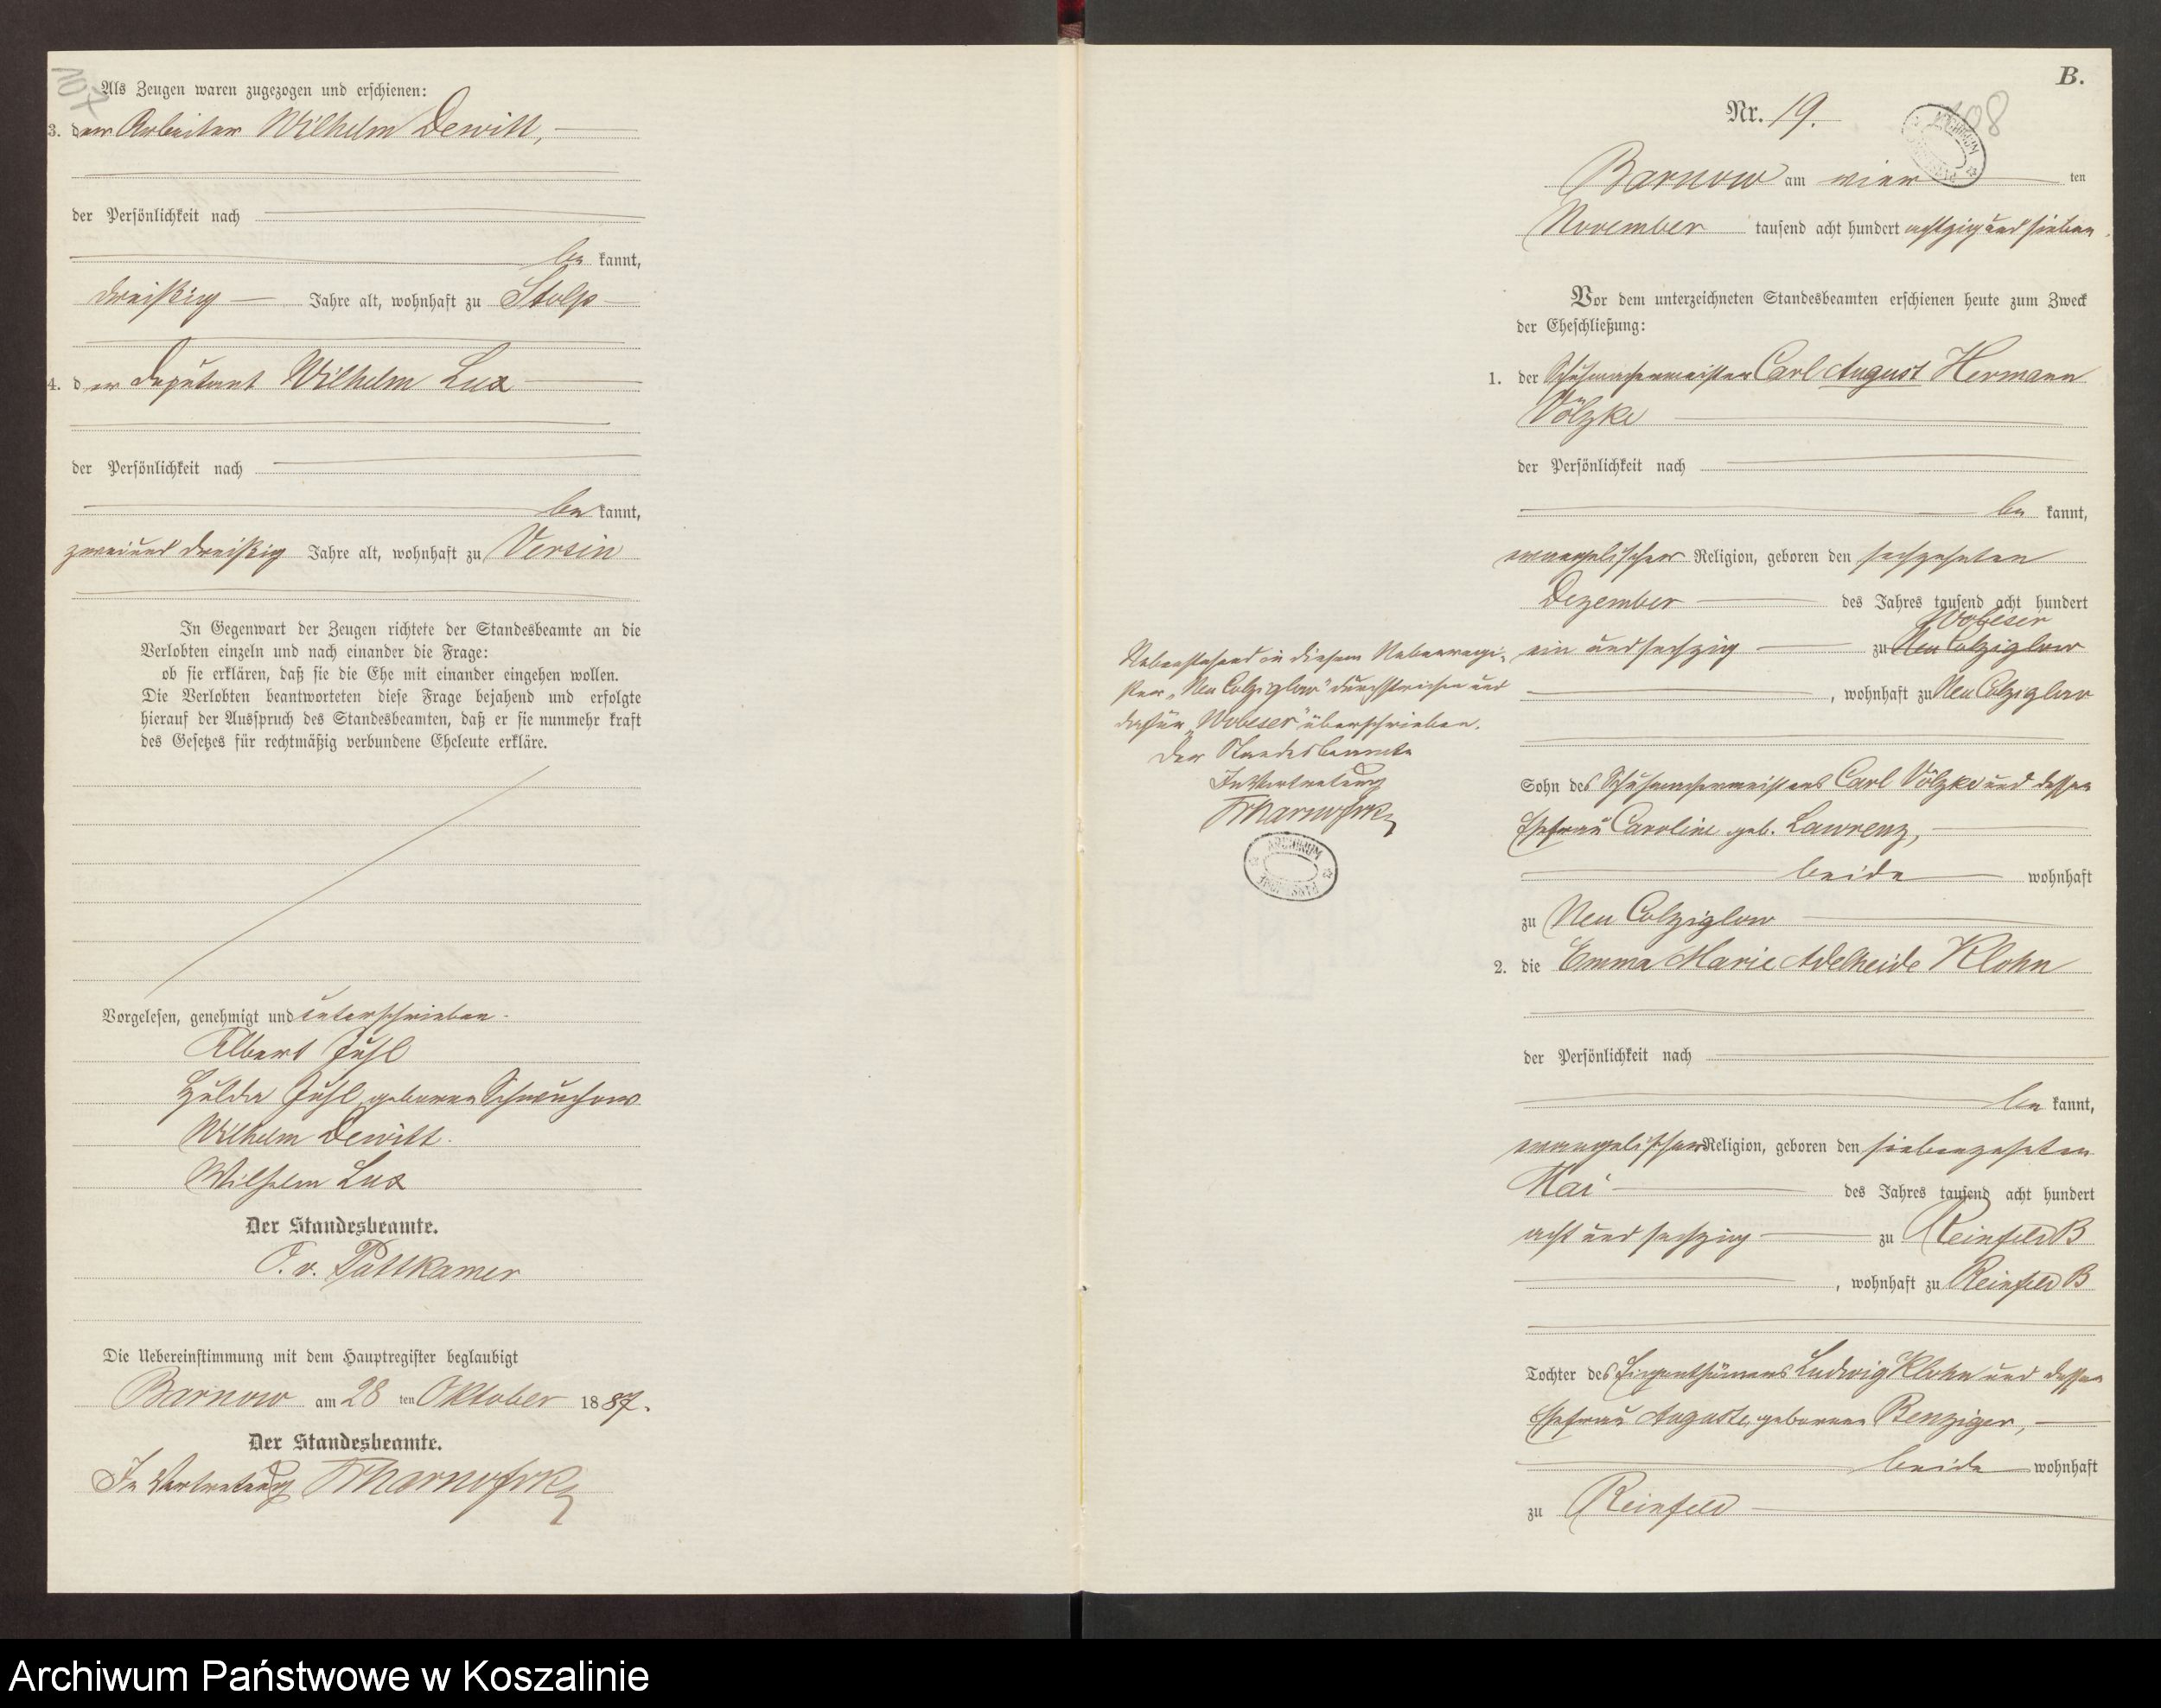 107
Als Zeugen waren zugezogen und erschienen:
3. der Arbeiter Wilhelm Dewitt,
der Persönlichkeit nach
be kannt,
dreißig Jahre alt, wohnhaft zu Stolp
4. der Deputant Wilhelm Lux
der Persönlichkeit nach
be kannt,
zweiund dreißig Jahre alt, wohnhaft zu Versin
In Gegenwart der Zeugen richtete der Standesbeamte an die
Verlobten einzeln und nach einander die Frage:
ob sie erklären, daß sie die Ehe mit einander eingehen wollen.
Die Verlobten beantworteten diese Frage bejahend und erfolgte
hierauf der Ausspruch des Standesbeamten, daß er sie nunmehr kraft
des Gesetzes für rechtmäßig verbundene Eheleute erkläre.
Vorgelesen, genehmigt und unterschrieben.
Albert Juhl
Hulda Juhl, geborene Schwuchow
Wilhelm Dewitt.
Wilhelm Lux
Der Standesbeamte.
v. Puttkamer
Die Uebereinstimmung mit dem Hauptregister beglaubigt
Barnow am 28 ten Oktober 1887.
Der Standesbeamte.
In Vertretung
B.
Nr. 19.
108
Barnow am vier ten
November tausend acht hundert achtzig und sieben.
Vor dem unterzeichneten Standesbeamten erschienen heute zum Zweck
der Eheschließung:
1. der Schuhmachermeister Carl August Hermann
Völzke
der Persönlichkeit nach
be kannt,
evangelischer Religion, geboren den sechzehnten
Dezember des Jahres tausend acht hundert
Wobeser
ein und sechzig zu Neu Colziglow
, wohnhaft zu Neu Colziglow
Sohn des Schuhmachermeisters Carl Völzke und dessen
Ehefrau Caroline geb. Lawrenz,
beide wohnhaft
zu Neu Colziglow
2. die Emma Marie Adelheide Klohn
der Persönlichkeit nach
be kannt,
evangelischer Religion, geboren den siebenzehnten
Mai des Jahres tausend acht hundert
acht und sechzig zu Reinfeld B
, wohnhaft zu Reinfeld B
Tochter des Eigenthümers Ludwig Klohn und dessen
Ehefrau Auguste, geborene Benziger,
beide wohnhaft
zu Reinfeld
Nebenstehend in diesem Nebenregi-
ster „Neu Colziglow" durchstrichen und
dafür „Wobeser" überschrieben.
Der Standesbeamte
In Vertretung
ARCHIWUM
PAŃSTWOWE
Archiwum Państwowe w Koszalinie